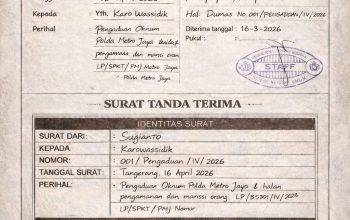 Kepada : Yth. Karo Wassidik
Hal: Dumas No. 001/PENGADUAN/IV/2026
Perihal : Pengaduan Oknum
Polda Metro Jaya
pengamanan dan
LP/SPKT/PMJ Metro Jaya
- Polda Metro Jaya
Diterima tanggal : 16-3-2026
Pukul :
STAFF
SURAT TANDA TERIMA
IDENTITAS SURAT
SURAT DARI: : Sugianto
KEPADA : Karowassidik
NOMOR: : 001 / Pengaduan / IV / 2026
TANGGAL SURAT: : Tangerang, 16 April 2026
PERIHAL: : Pengaduan Oknum Polda Metro Jaya &
pengamanan dan orang
LP/SPKT/PMJ Nomor